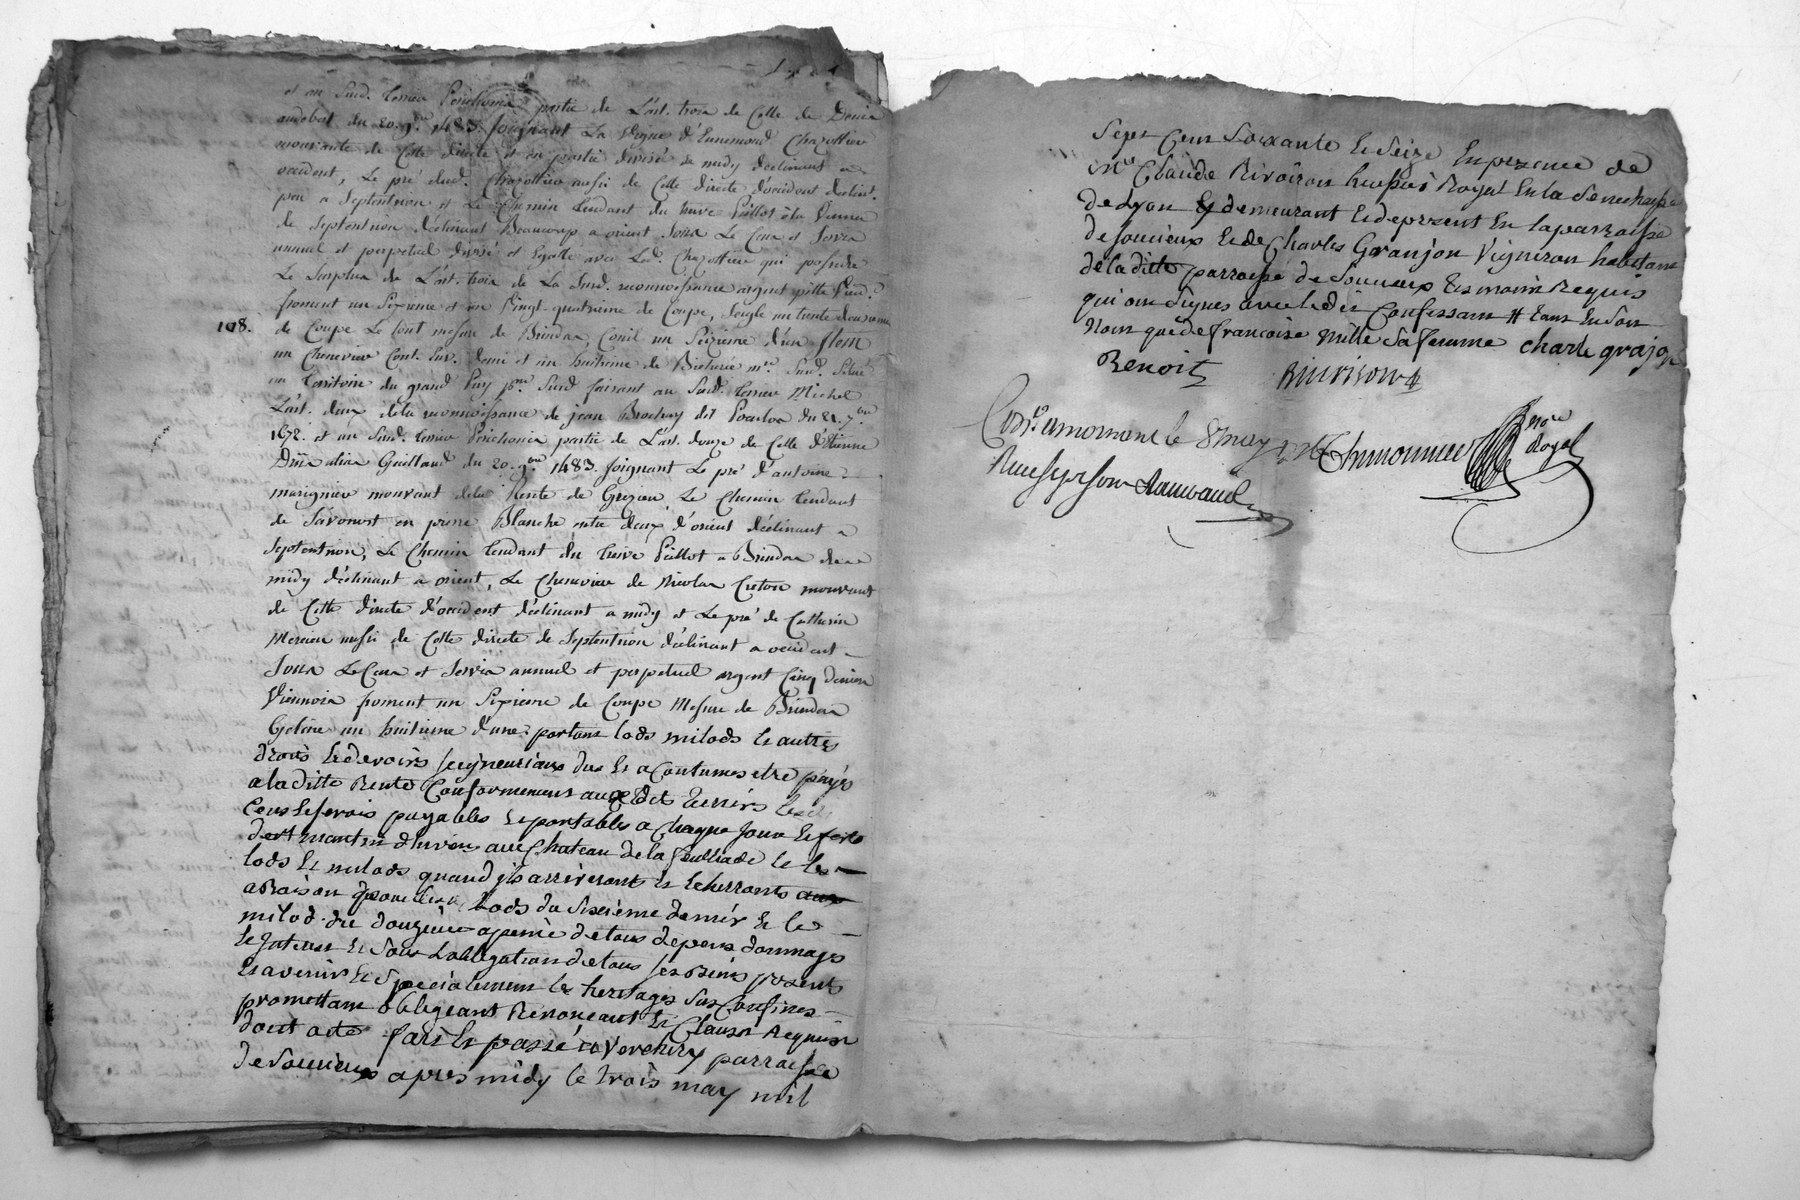 et au Susd. terrier Perichonia partie de L'art. trois de Celle de Denis
audebat du 20. 9.bre 1483. joignant La Vigne d'Ennemond Chazottier
mouvante de Cette directe et en partie divisé de midy declinant a
occident, Le pré dud. Chazottier aussi de Cette directe d'occident declint.
peu a Septentrion et Le Chemin tendant du Puillot à la
de Septentrion déclinant Beaucoup a orient Sous Le Cens et Servis
annuel et perpetuel divisé et Egallé avec Led. Chazottier qui possede
Le Surplus de L'art. trois de La Susd. reconnoissance argent pitte
froment un Sixieme et un Vingt-quatrieme de Coupe, Seigle un trente deuxieme
de Coupe Le tout mesure de Brindas, Conil un Seizieme d'un
108. Item
un Chenevier Cont. Env. demi et un huitieme de Bicherée m.e Susd. Situé
au territoire du grand Puy p.sse Susd. faisant au Susd. terrier Michel
L'art. deux de la reconnoissance de jean Brochay dit Poculon du 21. 7.bre
1672. et au Susd. terrier Perichonia partie de L'art. douze de Celle d'Etienne
alias Guillaud du 20. 9.bre 1483. joignant Le pré d'antoine
marignier mouvant de la Rente de Grezieu Le Chemin tendant
de Savonost en pierre Blanche entre deux d'orient déclinant a
Septentrion, Le Chemin tendant du Puillot a Brindas de
midy déclinant a orient, Le Chenevier de Nicolas Creton mouvant
de Cette directe d'occident déclinant a midy et Le pré de Catherin
Mercier aussi de Cette directe de Septentrion déclinant a occident
Sous Le Cens et Servis annuel et perpetuel argent Cinq deniers
Viennois froment un Sixieme de Coupe Mesure de Brindas
Geline un huitieme d'une portant lods milods & autres
droits & devoirs seigneuriaux dus & acoutumes etre payés
a la ditte Rente Conformement aux Edits terriers les
Cens & servis payables & portables a chaque jour & feste
de st martin d'hiver au Chateau de la feuillade & les
lods & milods quand ils arriveront & echerront aux
a Raison pour les lods du Sixieme denier & le
milod du douzieme a peine de tous depens dommages
& jnterets & Sous L'obligation de tous ses Biens presents
& avenirs & Specialement les heritages Sus Confinés
promettant obligeant Renonceant & Clauses Requises
dont acte fait & passé a Verchery parroisse
de Soucieux apres midy le trois may mil
Sept Cens Soixante & Seize En presence de
M.e Claude Rivoiron huissier Royal En la Senechaussée
de Lyon & demeurant & de present En la parroisse
de Soucieux & de Charles Granjon Vigneron habitant
de la ditte parroisse de Soucieux temoins Requis
qui ont Signés avec ledit Confessant # tant En Son
Nom que de francoise mille Sa femme charle grajon
Benoit Rivoiron
Con.lé a mornant le 8 may 1776
Thimonnier no.re Royal
Reçu